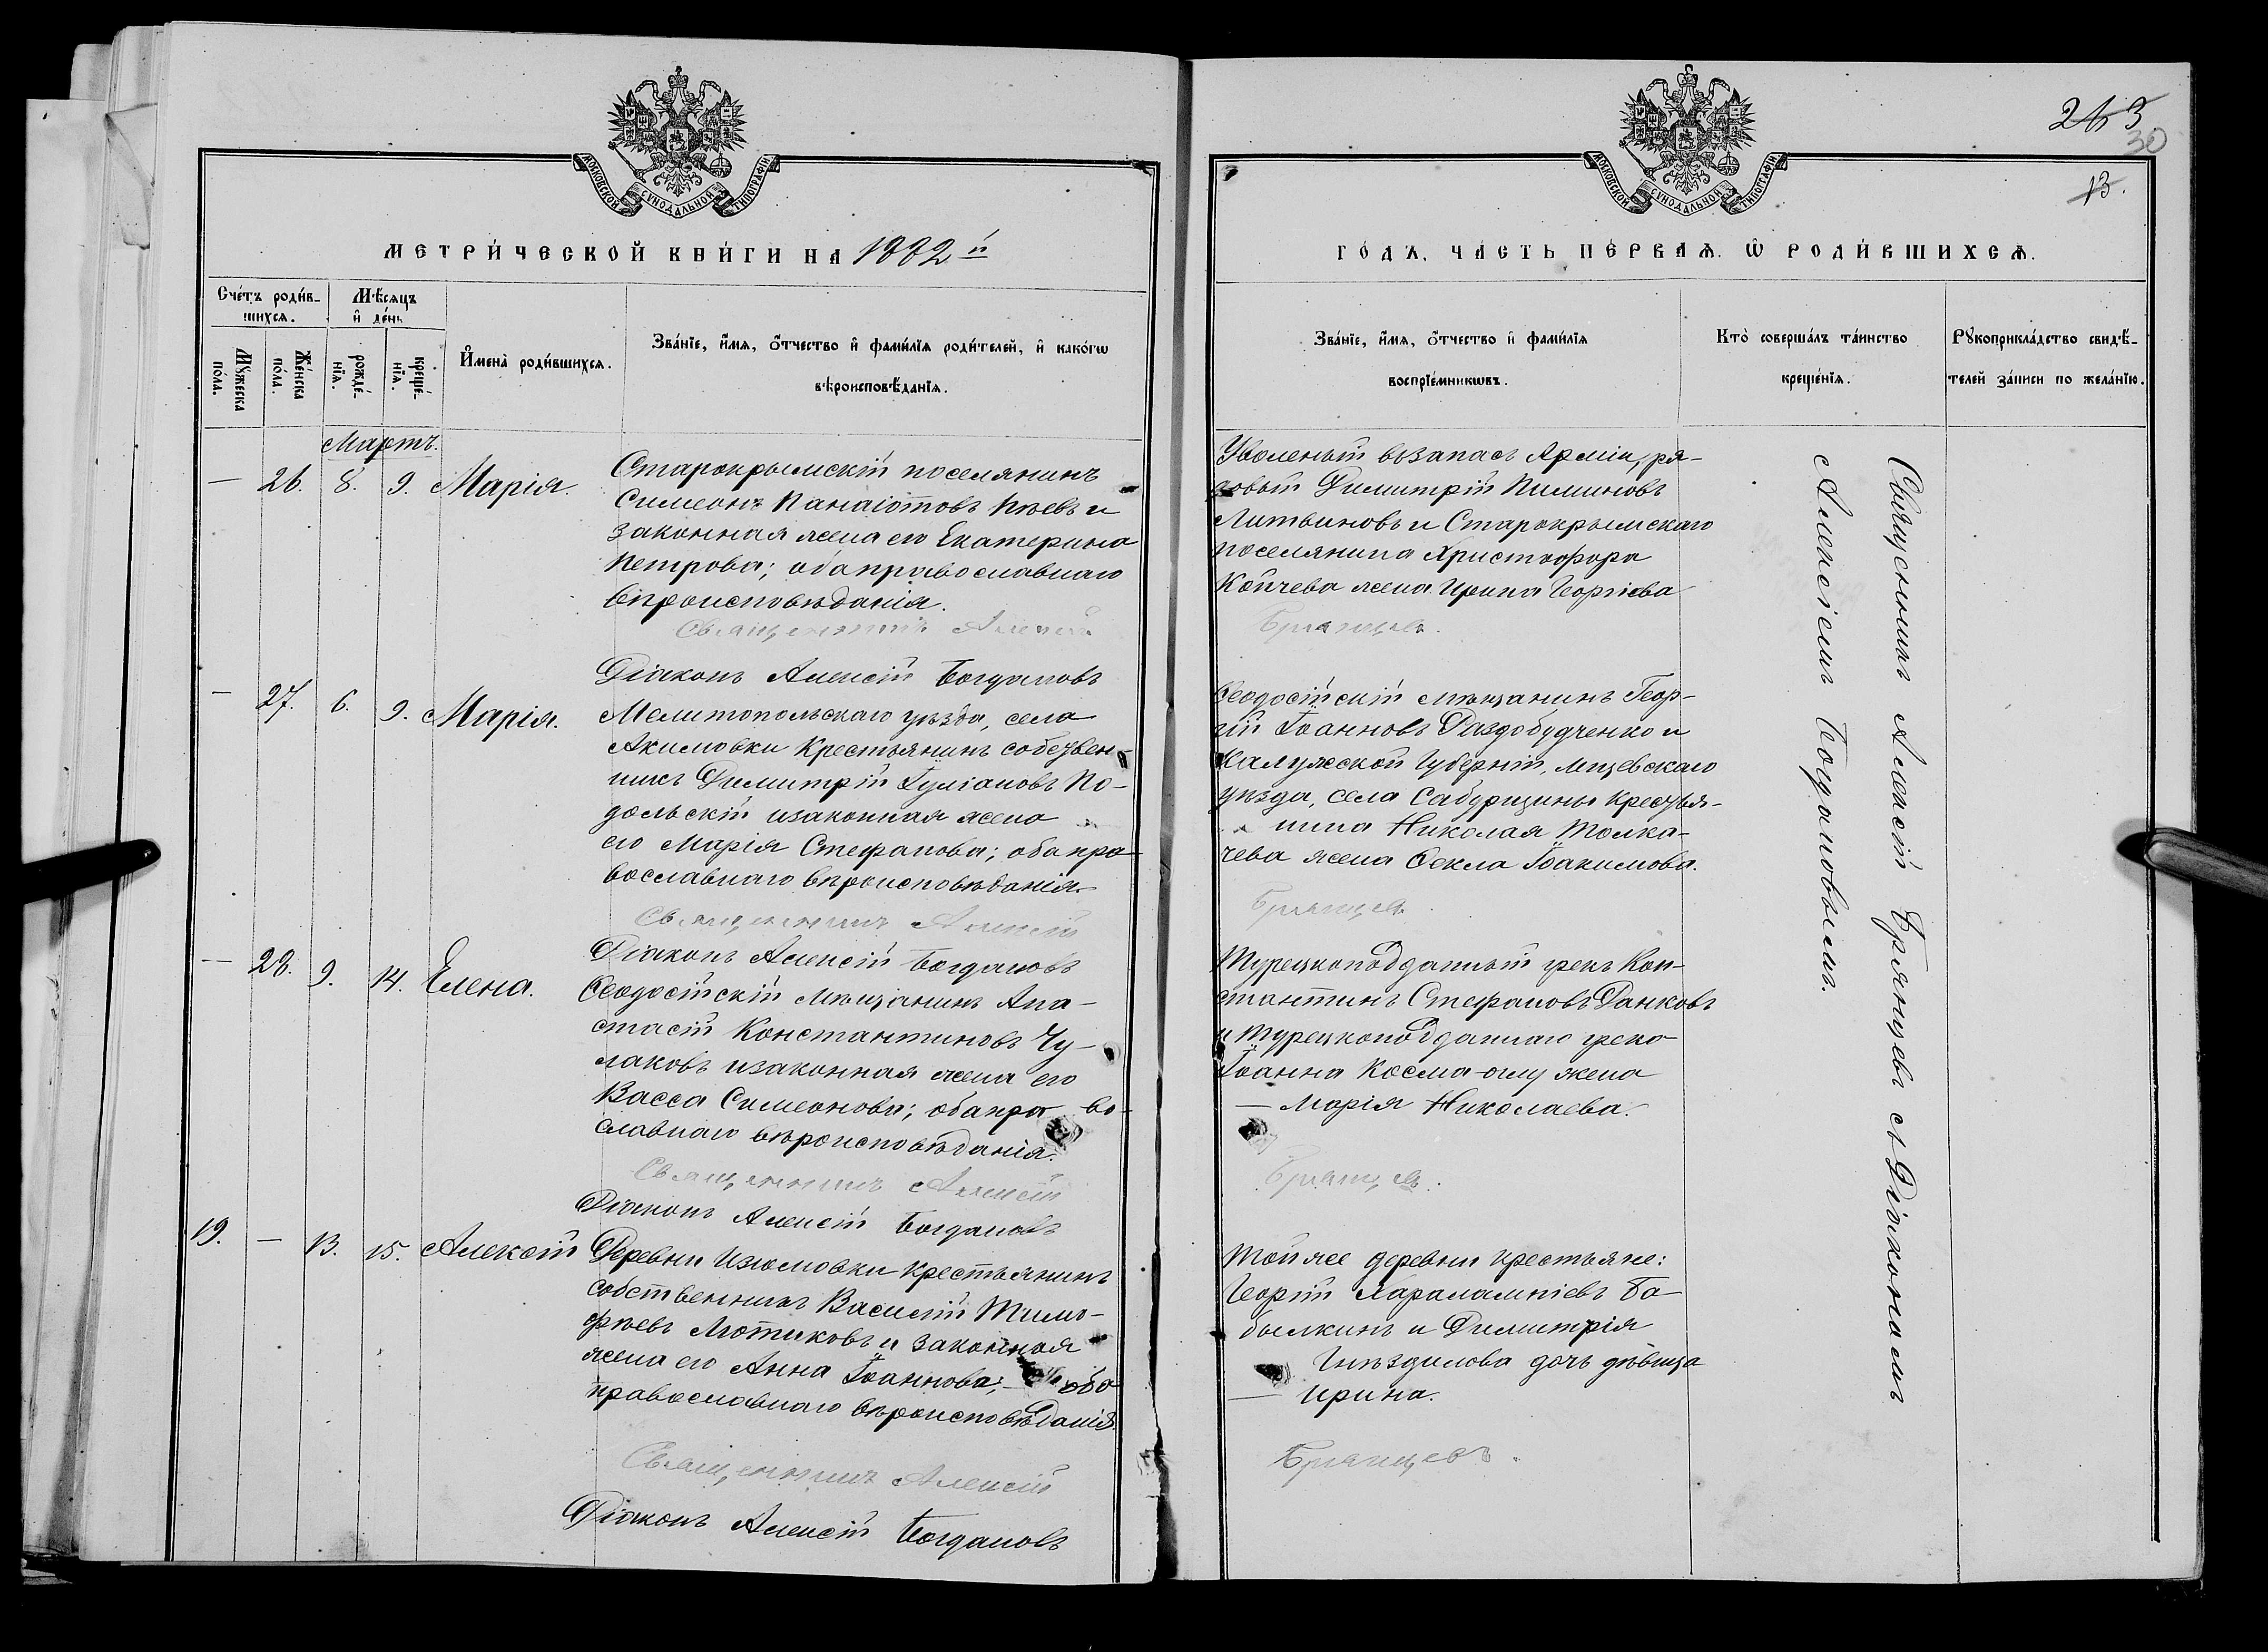 МОСКОВСКОЙ СѴНОДАЛЬНОЙ ТИПОГРАФІИ
МЕТРИ́ЧЕСКОЙ КНИ́ГИ НА 1882й
Сче́тъ роди́в-
шихся.
Мѣ́сяцъ
и҆ де́нь
Мꙋ́жеска
по́ла.
Же́нска
по́ла.
рожде́-
нїѧ.
креще́-
нїѧ.
И҆мена̀ роди́вшихсѧ.
Зва́нїе, и҆́мѧ, ѻ҆́тчество и҆ фами́лїѧ роди́телей, и҆ како́гѡ
вѣроисповѣ́данїѧ.
Мартъ.
— 26. 8. 9. Марія.
Старокрымскій поселянинъ
Симеонъ Панаіотовъ Пѣевъ и
законная жена его Екатерина
Петрова; оба православнаго
вѣроисповѣданія.
Священникъ Алексій
Діаконъ Алексій Богдановъ
— 27. 6. 9. Марія.
Мелитопольскаго уѣзда, села
Акимовки Крестьянинъ собствен-
никъ Димитрій Іуліановъ По-
дольскій и законная жена
его Марія Стефанова; оба пра-
вославнаго вѣроисповѣданія.
Священникъ Алексій
Діаконъ Алексій Богдановъ
— 28. 9. 14. Елена.
Ѳеодосійскій мѣщанинъ Ана-
стасій Константиновъ Чу-
лаковъ и законная жена его
Васса Симеонова; оба право-
славнаго вѣроисповѣданія.
Священникъ Алексій
Діаконъ Алексій Богдановъ
19. — 13. 15. Алексій
Деревни Изюмовки крестьянинъ
собственникъ Василій Тимо-
фѣевъ Лютиковъ и законная
жена его Анна Іоаннова; — оба
православнаго вѣроисповѣданія.
Священникъ Алексій
Діаконъ Алексій Богдановъ
30
13.
МОСКОВСКОЙ СѴНОДАЛЬНОЙ ТИПОГРАФІИ
ГО́ДЪ, ЧА́СТЬ ПЕ́РВАѦ. Ѽ РОДИ́ВШИХСѦ.
Зва́нїе, и҆́мѧ, ѻ҆́тчество и҆ фами́лїѧ
воспрїе́мникѡвъ.
Кто̀ соверша́лъ та́инство
креще́нїѧ.
Рꙋкоприкла́дство свидѣ́-
телей за́писи по жела́нїю.
Уволеный въ запасъ Арміи, ря-
довый Димитрій Пиминовъ
Литвиновъ и Старокрымскаго
поселянина Христофора
Койчева жена Ирина Георгіева
Брянцевъ.
Ѳеодосійскій мѣщанинъ Геор-
гій Іоанновъ Раздобудченко и
Калужской Губерніи, Мщевскаго
уѣзда, села Сабурщины крестья-
нина Николая Толка-
чева жена Ѳекла Іоакимова.
Брянцевъ.
Турецкоподданный грекъ Кон-
стантинъ Стефановъ Данковъ
и турецкоподданнаго грека
Іоанна Косма-оглу жена
— Марія Николаева.
Брянцевъ.
Той же деревни крестьяне:
Георгій Харалампіевъ Ба-
былкинъ и Димитрія
Гнѣздилова дочь дѣвица
— Ирина.
Брянцевъ.
Священникъ Алексій Брянцевъ съ Діакономъ
Алексіемъ Богдановымъ.